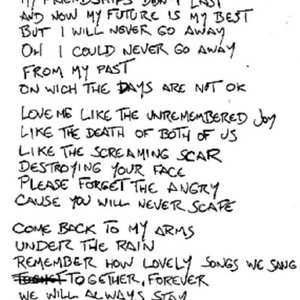 MY FRIENDSHIPS DON'T LAST
AND NOW MY FUTURE IS MY BEST
BUT I WILL NEVER GO AWAY
OH I COULD NEVER GO AWAY
FROM MY PAST
ON WICH THE DAYS ARE NOT OK
LOVE ME LIKE THE UNREMEMBERED JOY
LIKE THE DEATH OF BOTH OF US
LIKE THE SCREAMING SCAR
DESTROYING YOUR FACE
PLEASE FORGET THE ANGRY
CAUSE YOU WILL NEVER SCAPE
COME BACK TO MY ARMS
UNDER THE RAIN
REMEMBER HOW LOVELY SONGS WE SANG
TOGETHER, FOREVER
WE WILL ALWAYS STAY